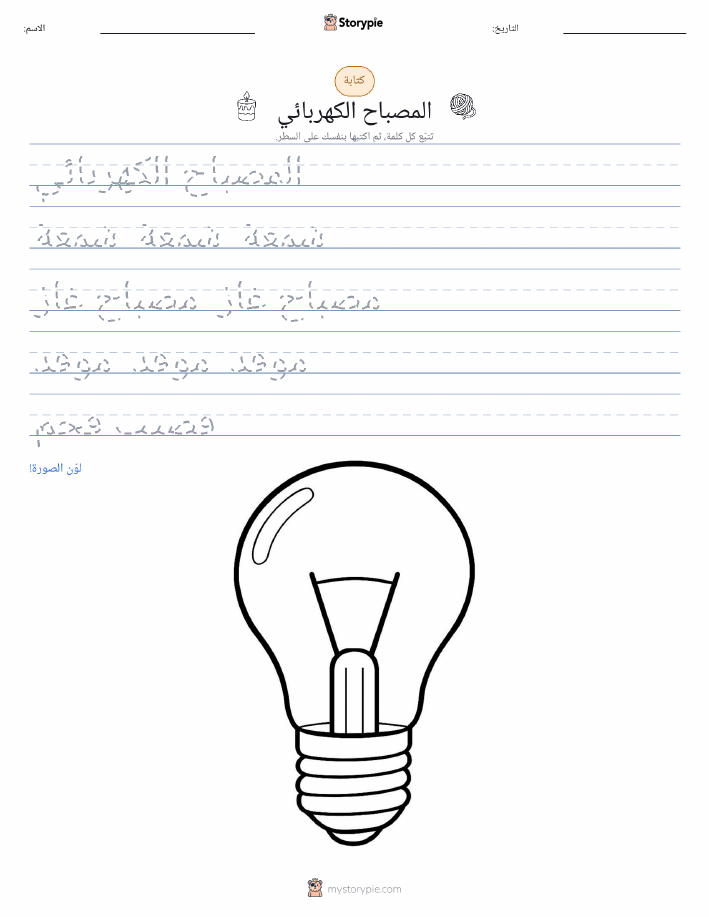 الاسم:
Storypie
التاريخ:
كتابة
المصباح الكهربائي
تتبّع كل كلمة، ثم اكتبها بنفسك على السطر.
المصباح الكهربائي
شمعة شمعة شمعة
مصباح غاز مصباح غاز
موقد موقد موقد
قضيب فحم
لوّن الصورة!
mystorypie.com